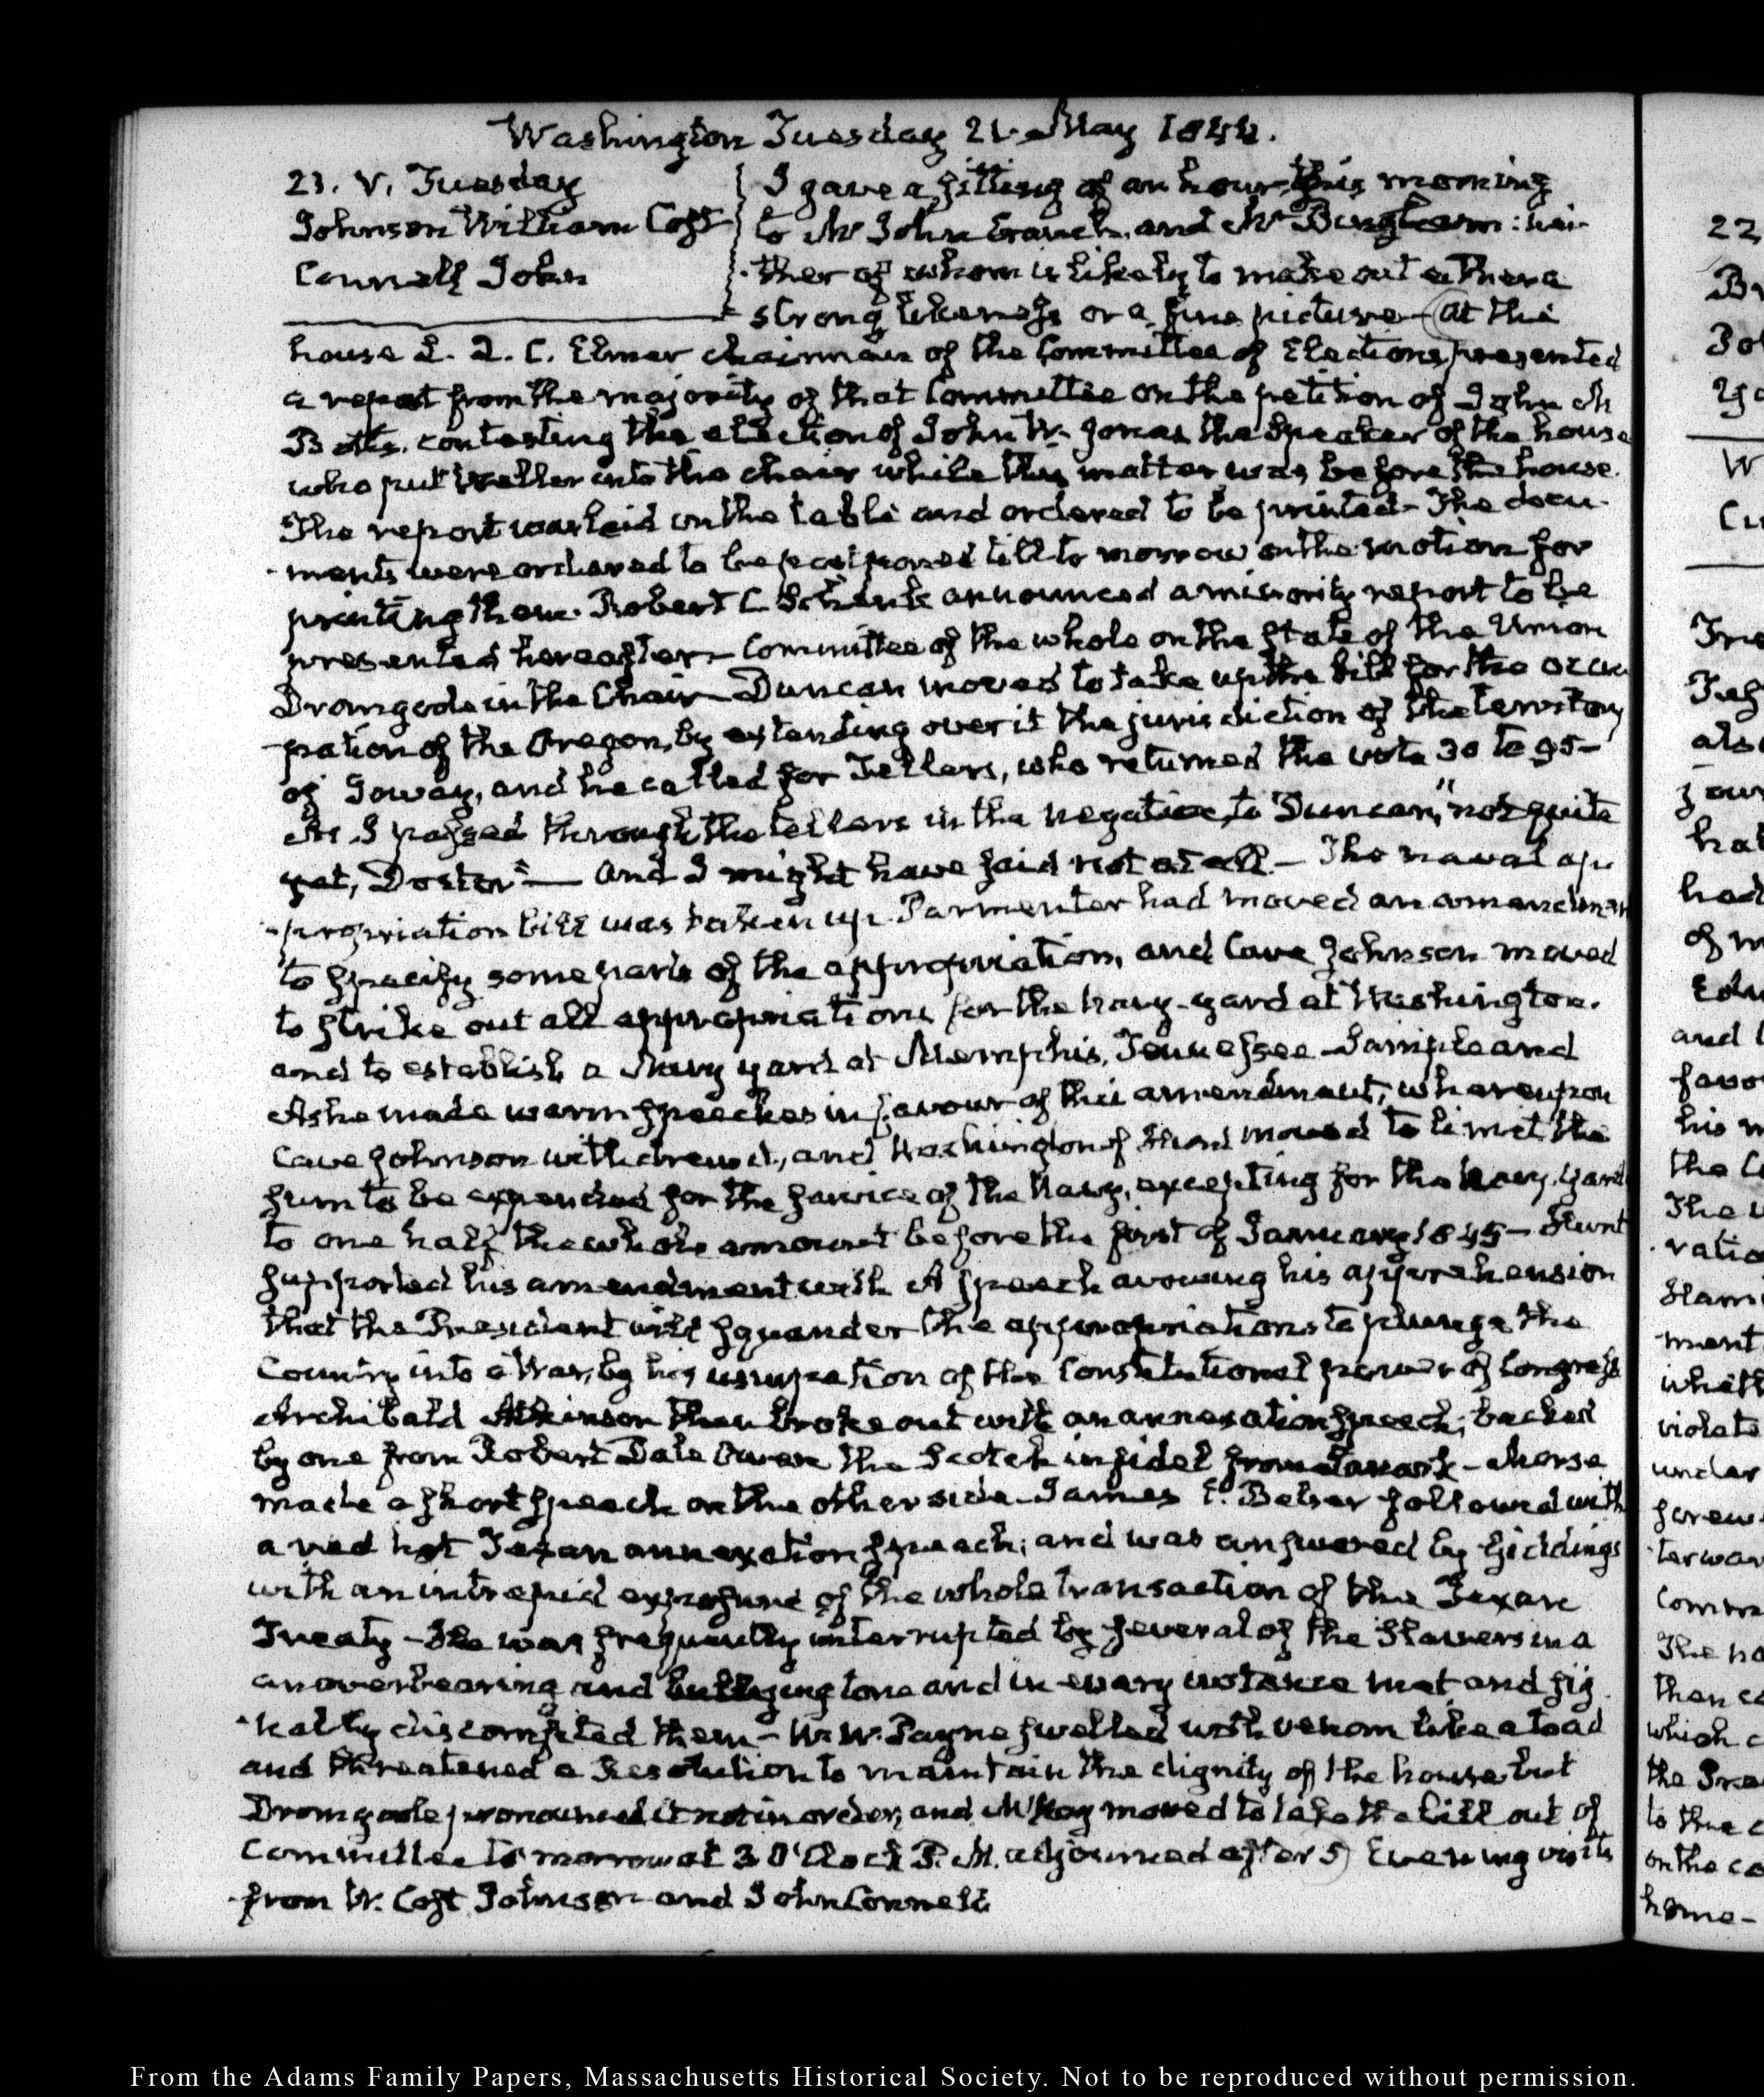 Washington Tuesday 21. May 1844.
23. V. Tuesday
Johnson William Cost
Connell John
I gave a sitting of an hour, this morning
to Mr John Cranch, and Mr Bingham: nei-
-ther of whom is likely to make out either a
strong likeness or a fine picture— At the
house L. Q. C. Elmer chairman of the Committee of Elections, presented
a report from the majority of that Committee on the petition of John M
Botts, contesting the election of John W. Jones the Speaker of the house
who put Weller into the chair while this matter was before the house.
The report was laid on the table and ordered to be printed— The docu-
-ments were ordered to be postponed till to morrow on the motion for
printing them. Robert C. Schenck announced a minority report to be
presented hereafter— Committee of the whole on the State of the Union
Dromgoole in the Chair— Duncan moved to take up the bill for the occu
-pation of the Oregon, by extending over it the jurisdiction of the territory
of Ioway, and he called for Tellers, who returned the vote 30 to 95—
As I passed through the tellers in the negative, to Duncan, "not quite
yet, Doctor"— and I might have said not at all.— The naval ap
-propriation bill was taken up. Parmenter had moved an amendment
to specify some parts of the appropriation, and Cave Johnson moved
to strike out all appropriations for the navy-yard at Washington.
and to establish a Navy yard at Memphis, Tennessee— Sample and
Ashe made warm speeches in favour of this amendment, whereupon
Cave Johnson withdrew it, and Washington Hunt moved to limit the
sum to be expended for the service of the Navy, excepting for the Navy-Yard
to one half the whole amount before the first of January 1845— Hunt
supported his amendment with a speech avowing his apprehension
that the President will squander the appropriations to plunge the
Country into a War, by his usurpation of the Constitutional power of Congress
Archibald Atkinson then broke out with an annexation speech; backed
by one from Robert Dale Owen the Scotch infidel from Lanark— Morse
made a short speech on the other side— James E. Belser followed with
a red hot Texan annexation speech; and was answered by Giddings
with an intrepid exposure of the whole transaction of the Texan
Treaty— He was frequently interrupted by several of the Slavers in a
an overbearing and bullying tone and in every instance met and sig
-nally discomfited them— W. W. Payne swelled with venom like a toad
and threatened a Resolution to maintain the dignity of the house, but
Dromgoole pronounced it not in order, and McKay moved to take the bill out of
Committee to morrow at 2 O'Clock P. M. adjourned after 5) Evening visits
from W. Cost Johnson and John Connell.
22
From the Adams Family Papers, Massachusetts Historical Society. Not to be reproduced without permission.